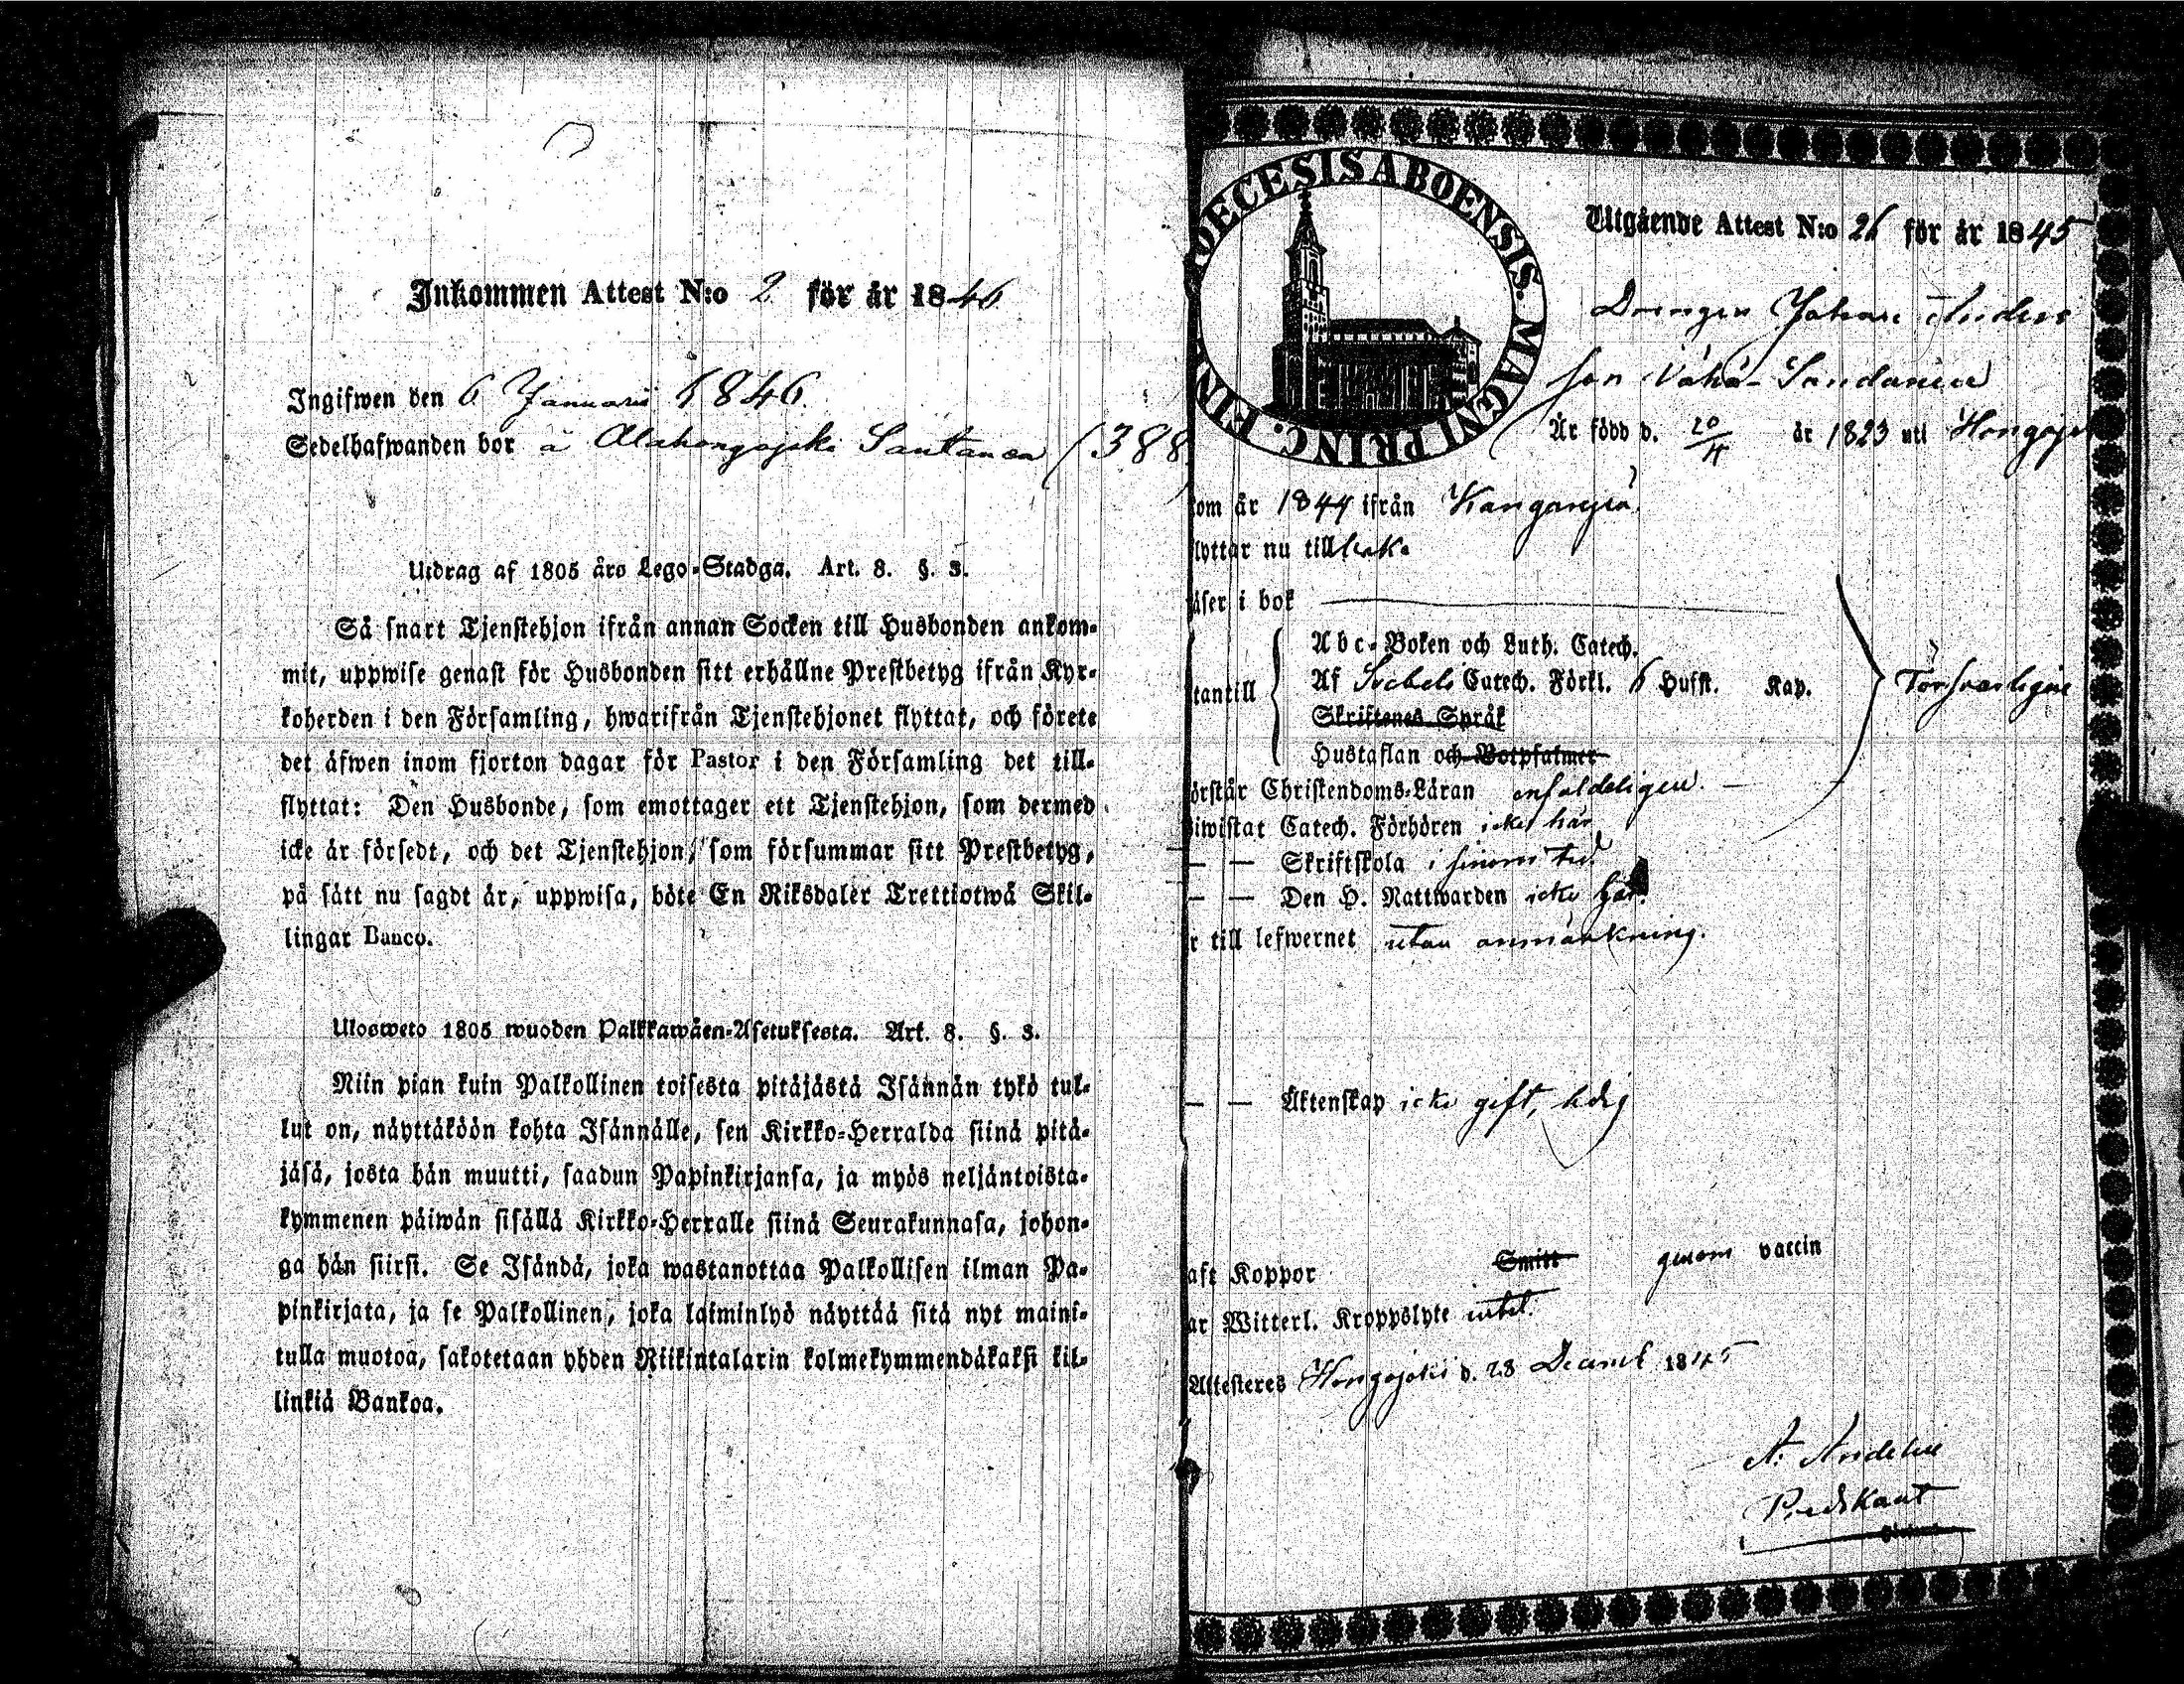 Inkommen Attest N:o 2 för år 1846
Ingifwen den 6 Januarii 1846.
Sedelhafwanden bor å Alahongojoki Santanen (388
Utdrag af 1805 års Lego-Stadga. Art. 8. §. 3.
Så snart Tjenstehjon ifrån annan Socken till Husbonden ankom-
mit, uppwise genast för Husbonden sitt erhållne Prestbetyg ifrån Kyr-
koherden i den Församling, hwarifrån Tjenstehjonet flyttat, och förete
det äfwen inom fjorton dagar för Pastor i den Församling det till-
flyttat: Den Husbonde, som emottager ett Tjenstehjon, som dermed
icke är försedt, och det Tjenstehjon, som försummar sitt Prestbetyg,
på sätt nu sagdt är, uppwisa, böte En Riksdaler Trettiotwå Skil-
lingar Banco.
Ulosweto 1805 wuoden Palkkawäen-Asetuksesta. Art. 8. §. 3.
Niin pian kuin Palkollinen toisesta pitäjästä Isännän tykö tul-
lut on, näyttäköön kohta Isännälle, sen Kirkko-Herralda siinä pitä-
jäsä, josta hän muutti, saadun Papinkirjansa, ja myös neljäntoista-
kymmenen päiwän sisällä Kirkko-Herralle siinä Seurakunnasa, johon-
ga hän siirsi. Se Isändä, joka wastanottaa Palkollisen ilman Pa-
pinkirjata, ja se Palkollinen, joka laiminlyö näyttää sitä nyt maini-
tulla muotoa, sakotetaan yhden Riikintalarin kolmekymmendäkaksi kil-
linkiä Bankoa.
OECESIS ABOENSIS. MAGNI PRINC. FIN
Utgående Attest N:o 26 för år 1845
Drengen Johan Anders
son Vähä-Sandanen
Är född d. 20/11 år 1823 uti Hongojo
kom år 1844 ifrån Kangasniemi
flyttar nu tillbaka
äser i bok
Abc-Boken och Luth. Catech.
tantill Af Svebeli Catech. Förkl. 6 Hufst. Kap. Försvarligen
Skriftenes Språk
Hustaflan och Botpsalmer
örstår Christendoms-Läran enfaldeligen.
iwistat Catech. Förhören icke här
— — Skriftskola i sinom tid
— — Den H. Nattwarden icke här.
r till lefwernet utan anmärkning.
— — Äktenskap icke gift, ledig
aft Koppor Smitt genom vaccin
ar Witterl. Kroppslyte intet.
Attesteres Hongojoki d. 28 Decemb 1845
A. Andelin
Predikant